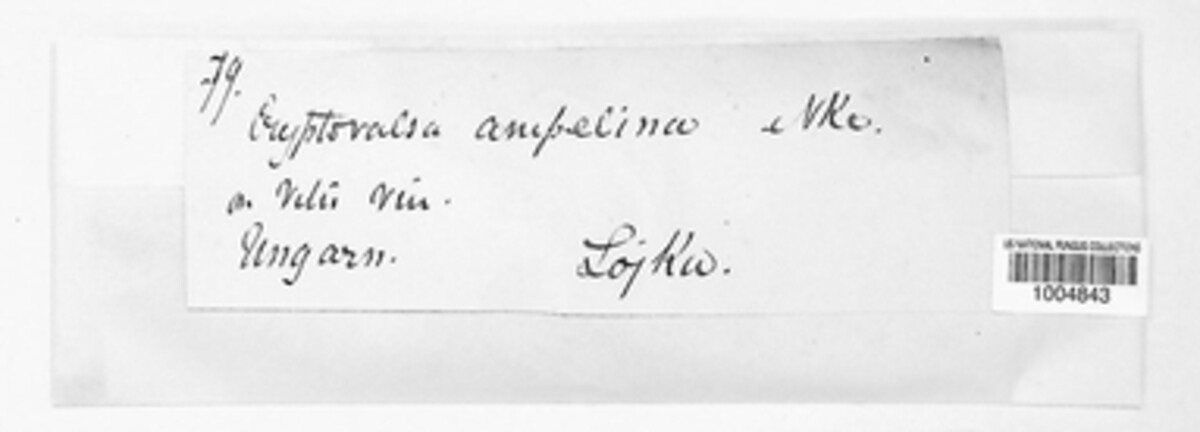 79.
Cryptovalsa ampelina Nke.
a. Vitis vin.
Ungarn. Lojka.
US NATIONAL FUNGUS COLLECTIONS
1004843